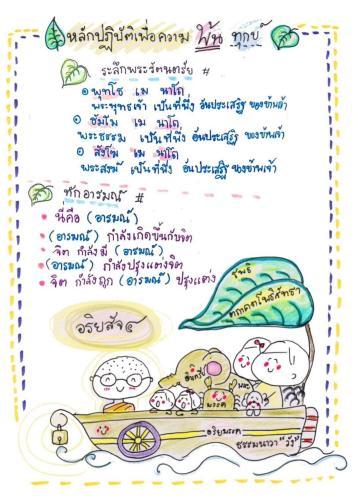 หลักปฏิบัติเพื่อความ พ้น ทุกข์
ระลึกพระรัตนตรัย #
๑ พุทโธ เม นาโถ
พระพุทธเจ้า เป็นที่พึ่ง อันประเสริฐ ของข้าพเจ้า
๑ ธัมโม เม นาโถ
พระธรรม เป็นที่พึ่ง อันประเสริฐ ของข้าพเจ้า
๑ สังโฆ เม นาโถ
พระสงฆ์ เป็นที่พึ่ง อันประเสริฐ ของข้าพเจ้า
ทักอารมณ์ #
นี่คือ (อารมณ์)
(อารมณ์) กำลังเกิดขึ้นกับจิต
จิต กำลังมี (อารมณ์)
(อารมณ์) กำลังปรุงแต่งจิต
จิต กำลังถูก (อารมณ์) ปรุงแต่ง
โพธิ
ตถาคตโพธิสัทธา
อริยสัจ ๔
อินทรีย์
พละ
มรรค
อริยมรรค
ธรรมนาวา "วัง"